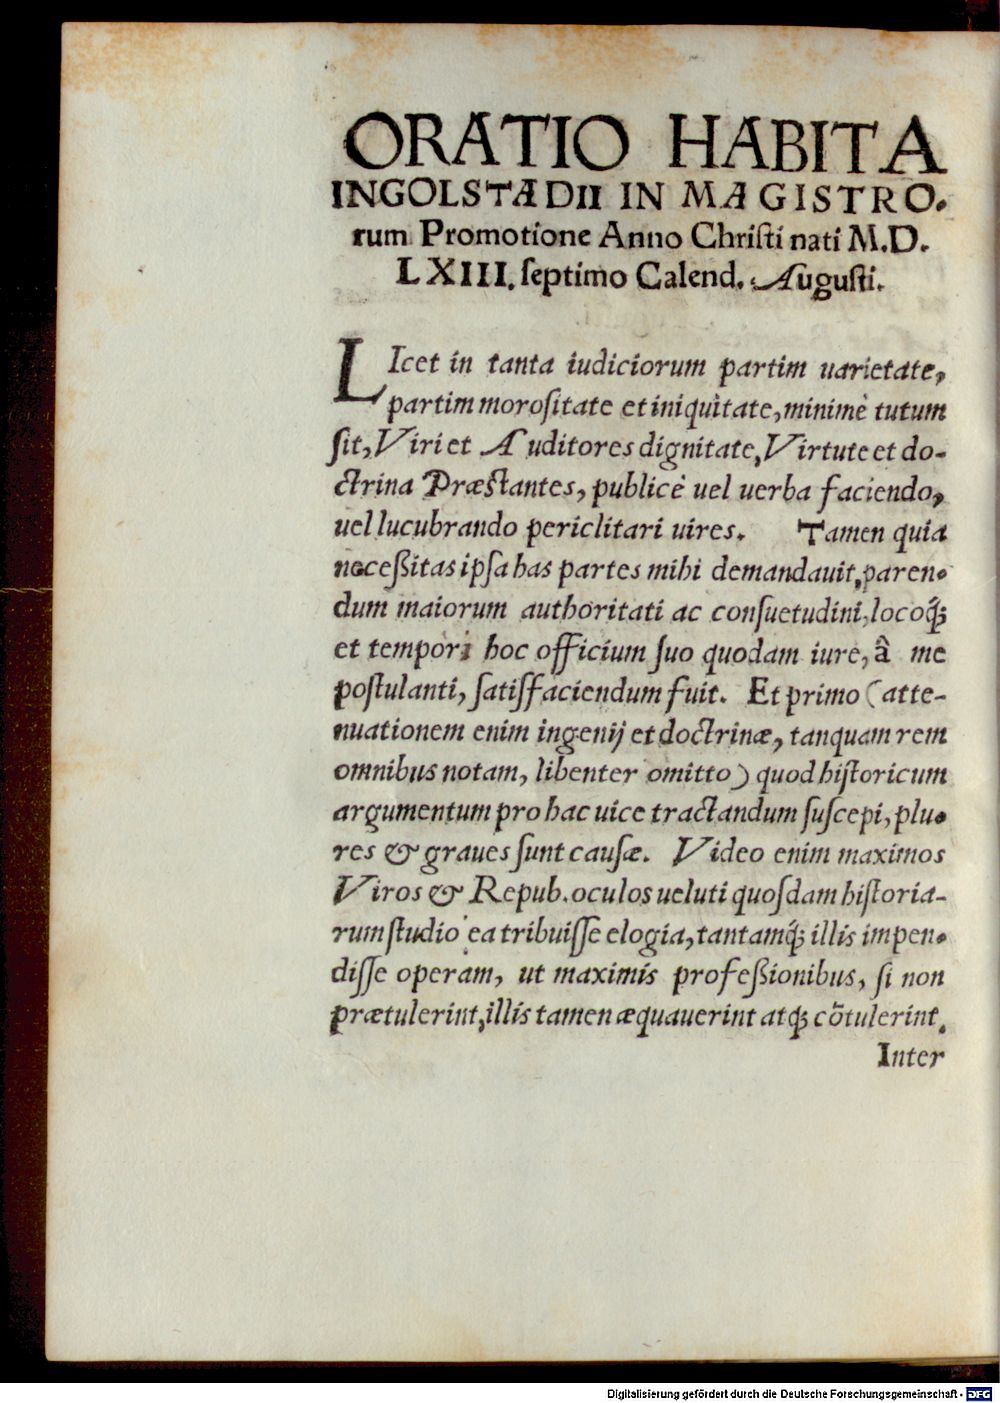 ORATIO HABITA
INGOLSTADII IN MAGISTRO.
rum Promotione Anno Chriſti nati M.D.
LXIII. ſeptimo Calend. Auguſti.
LIcet in tanta iudiciorum partim uarietate,
partim moroſitate et iniquitate, minimè tutum
ſit, Viri et Auditores dignitate, Virtute et do-
ctrina Præſtantes, publicè uel uerba faciendo,
uel lucubrando periclitari uires. Tamen quia
neceßitas ipſa has partes mihi demandauit, paren-
dum maiorum authoritati ac conſuetudini, locoq́ꝫ
et tempori hoc officium ſuo quodam iure, â me
poſtulanti, ſatiſfaciendum fuit. Et primo (atte-
nuationem enim ingenij et doctrinæ, tanquam rem
omnibus notam, libenter omitto) quod hiſtoricum
argumentum pro hac uice tractandum ſuſcepi, plu-
res & graues ſunt cauſæ. Video enim maximos
Viros & Repub. oculos ueluti quoſdam hiſtoria-
rum ſtudio ea tribuiſſe elogia, tantamq́ꝫ illis impen-
diſſe operam, ut maximis profeßionibus, ſi non
prætulerint, illis tamen æquauerint atqꝫ cõtulerint.
Inter
Digitalisierung gefördert durch die Deutsche Forschungsgemeinschaft - DFG